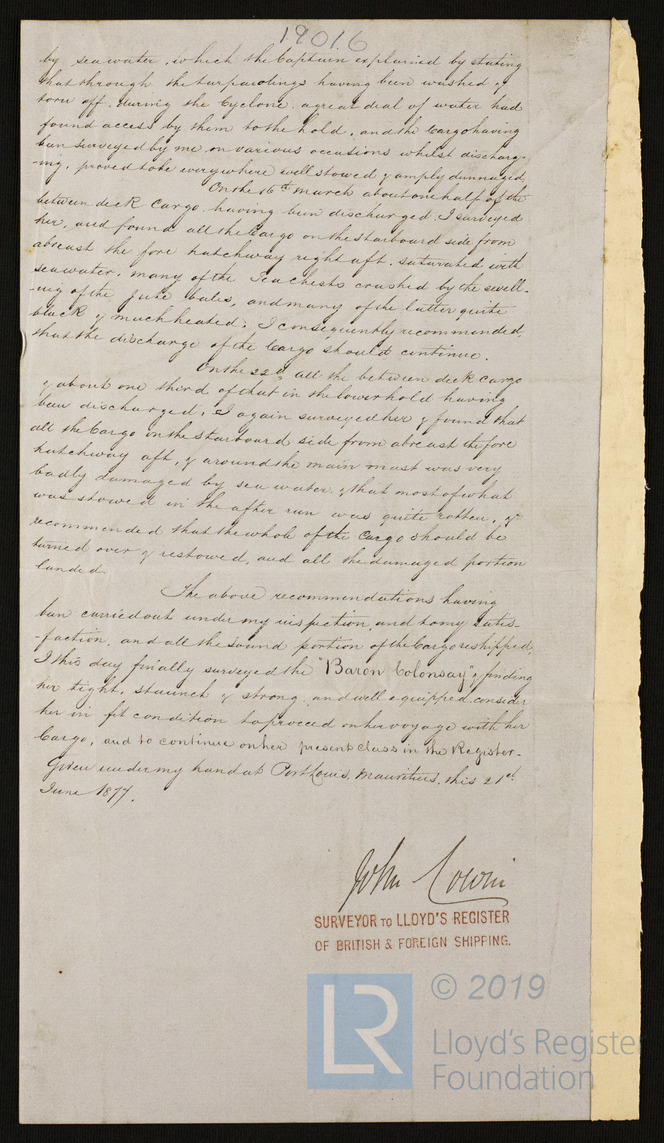 19016
by sea water, which the Captain explained by stating
that through the tarpaulings having been washed &
torn off during the Cyclone, a great deal of water had
found access by them to the hold, and the Cargo having
been surveyed by me on various occasions whilst discharg-
-ing, proved to be everywhere well stowed & amply dunnaged.
On the 16th March about one half of the
between deck Cargo having been discharged, I surveyed
her, and found all the Cargo on the starboard side from
abreast the fore hatchway right aft, saturated with
sea water, many of the Tea Chests crushed by the swell-
-ing of the Jute bales, and many of the latter quite
black & much heated; I consequently recommended,
that the discharge of the Cargo should continue.
On the 22d all the between deck cargo
& about one third of that in the lower hold having
been discharged, I again surveyed her & found that
all the Cargo on the starboard side from abreast the fore
hatchway aft, & around the main mast was very
badly damaged by sea water & that most of what
was stowed in the after run was quite rotten, &
recommended that the whole of the Cargo should be
turned over & restowed, and all the damaged portion
landed.
The above recommendations having
been carried out under my inspection and to my satis-
-faction, and all the sound portion of the Cargo reshipped,
I this day finally surveyed the "Baron Colonsay" & finding
her tight, staunch & strong, and well equipped, consider
her in fit condition to proceed on her voyage with her
Cargo, and to continue on her present class in the Register.
Given under my hand at Port Louis, Mauritius, this 21st
June 1877.
John Cowin
SURVEYOR TO LLOYD'S REGISTER
OF BRITISH & FOREIGN SHIPPING.
LR
© 2019
Lloyd's Register
Foundation